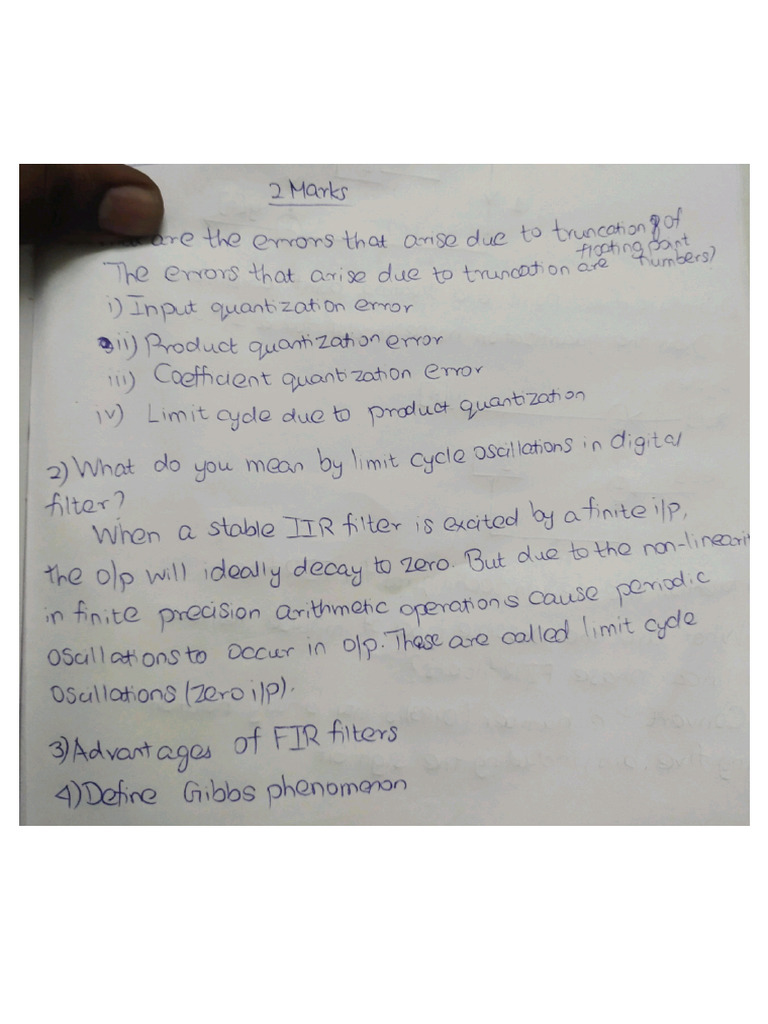 2 Marks
are the errors that arise due to truncation of
floating point
numbers?
The errors that arise due to truncation are
i) Input quantization error
ii) Product quantization error
iii) Coefficient quantization error
iv) Limit cycle due to product quantization
2) What do you mean by limit cycle oscillations in digital
filter?
When a stable IIR filter is excited by a finite i/p,
the o/p will ideally decay to zero. But due to the non-linearit
in finite precision arithmetic operations cause periodic
oscillations to occur in o/p. These are called limit cycle
oscillations (zero i/p).
3) Advantages of FIR filters
4) Define Gibbs phenomenon